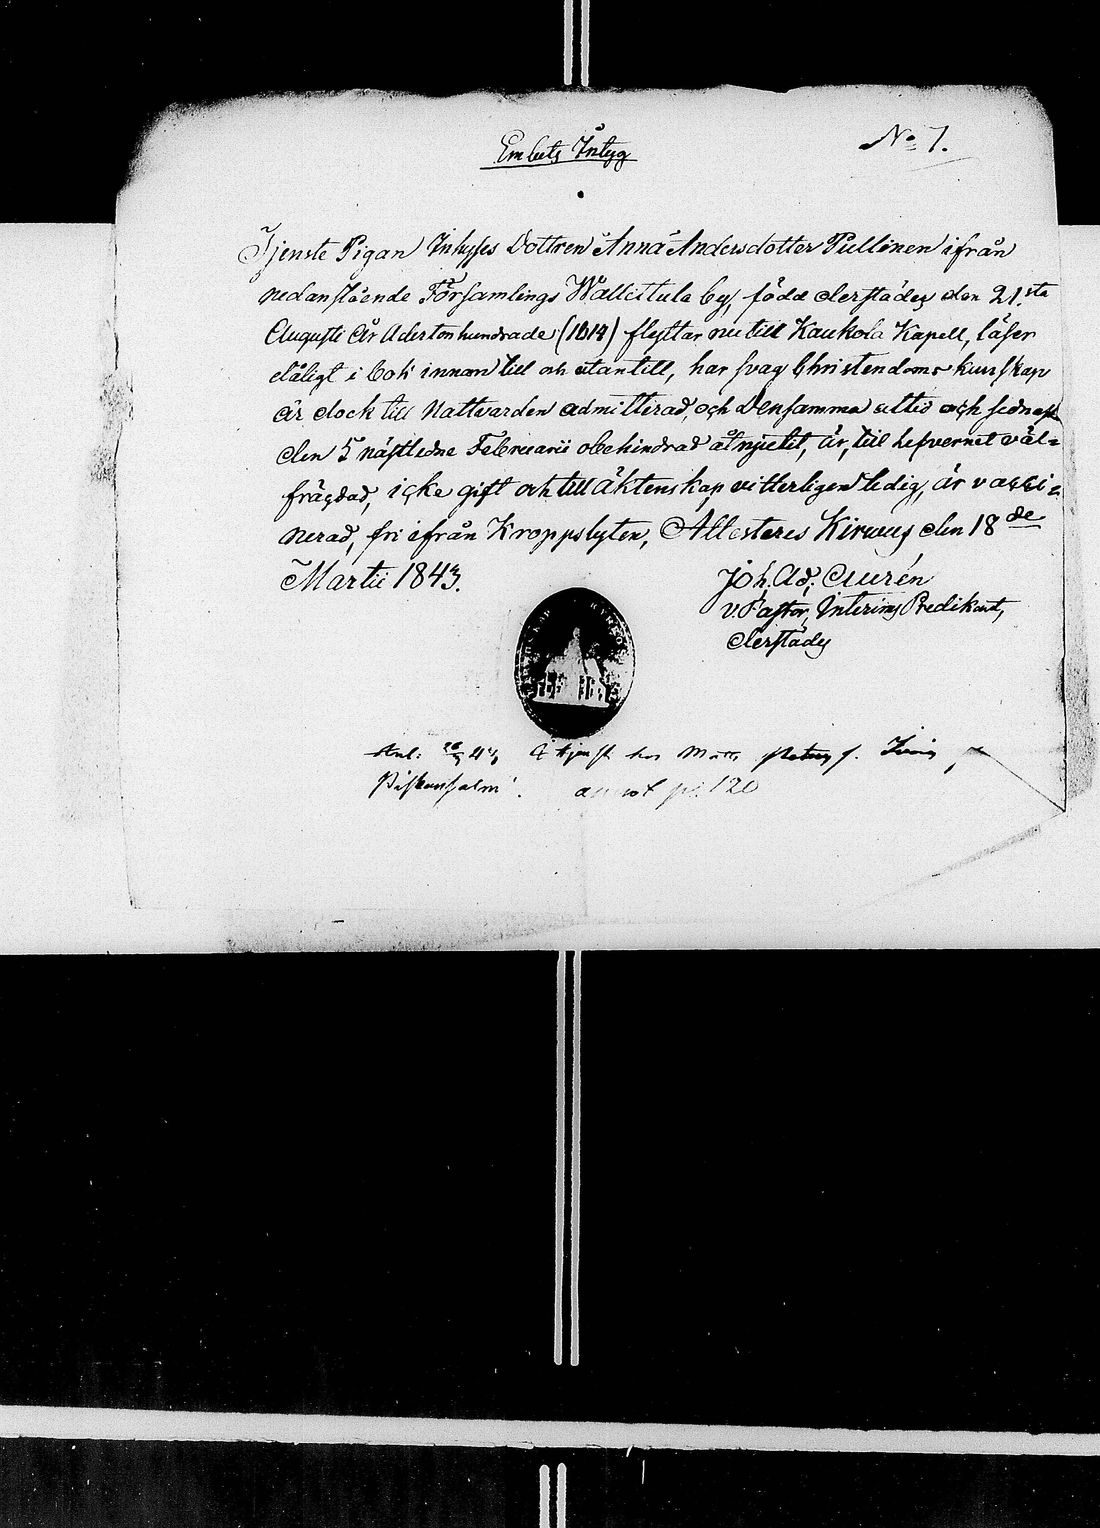 Embets Intyg
No 7.
Tjenste Pigan Inhyses Dottren Anna Andersdotter Pullinen ifrån
nedanstående Församlings Wallitula by, född derstädes den 21.sta
Augusti år Adertonhundrade (1814) flyttar nu till Kaukola Kapell, läser
dåligt i bok innan till och utantill, har svag Christendoms kunskap
är dock till Nattvarden admitterad, och Densamma altid och sednast
den 5 nästledne Februarii obehindrad åtnjutit, är, till lefvernet väl-
frägdad, icke gift och till äktenskap vitterligen ledig, är vacci-
nerad, fri ifrån Kroppslyten, Attesteres Kirwus den 18de
Martii 1843.
Joh. Ad. Aurén
v. Pastor, Interims Predikant,
derstädes
i tjenst hos
120